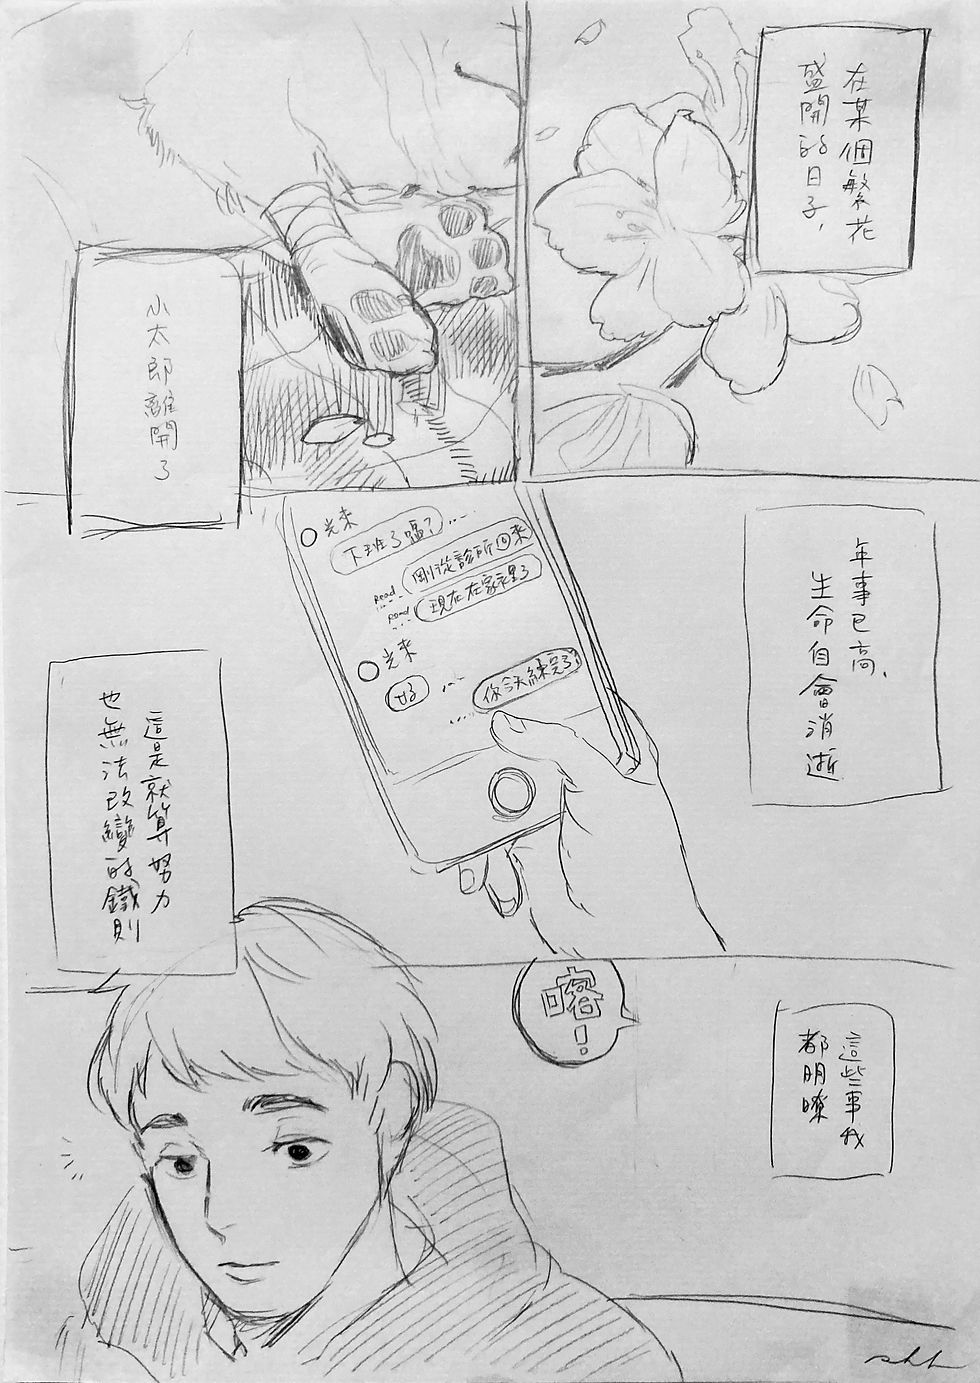 在某個繁花
盛開的日子,
小太郎離開了
光來
下班了嗎?
剛從診所回來
read
現在在家裡了
read
光來
好
你今天練完了?
年事已高,
生命自會消逝
這是就算努力
也無法改變的鐵則
喀!
這些事我
都明瞭